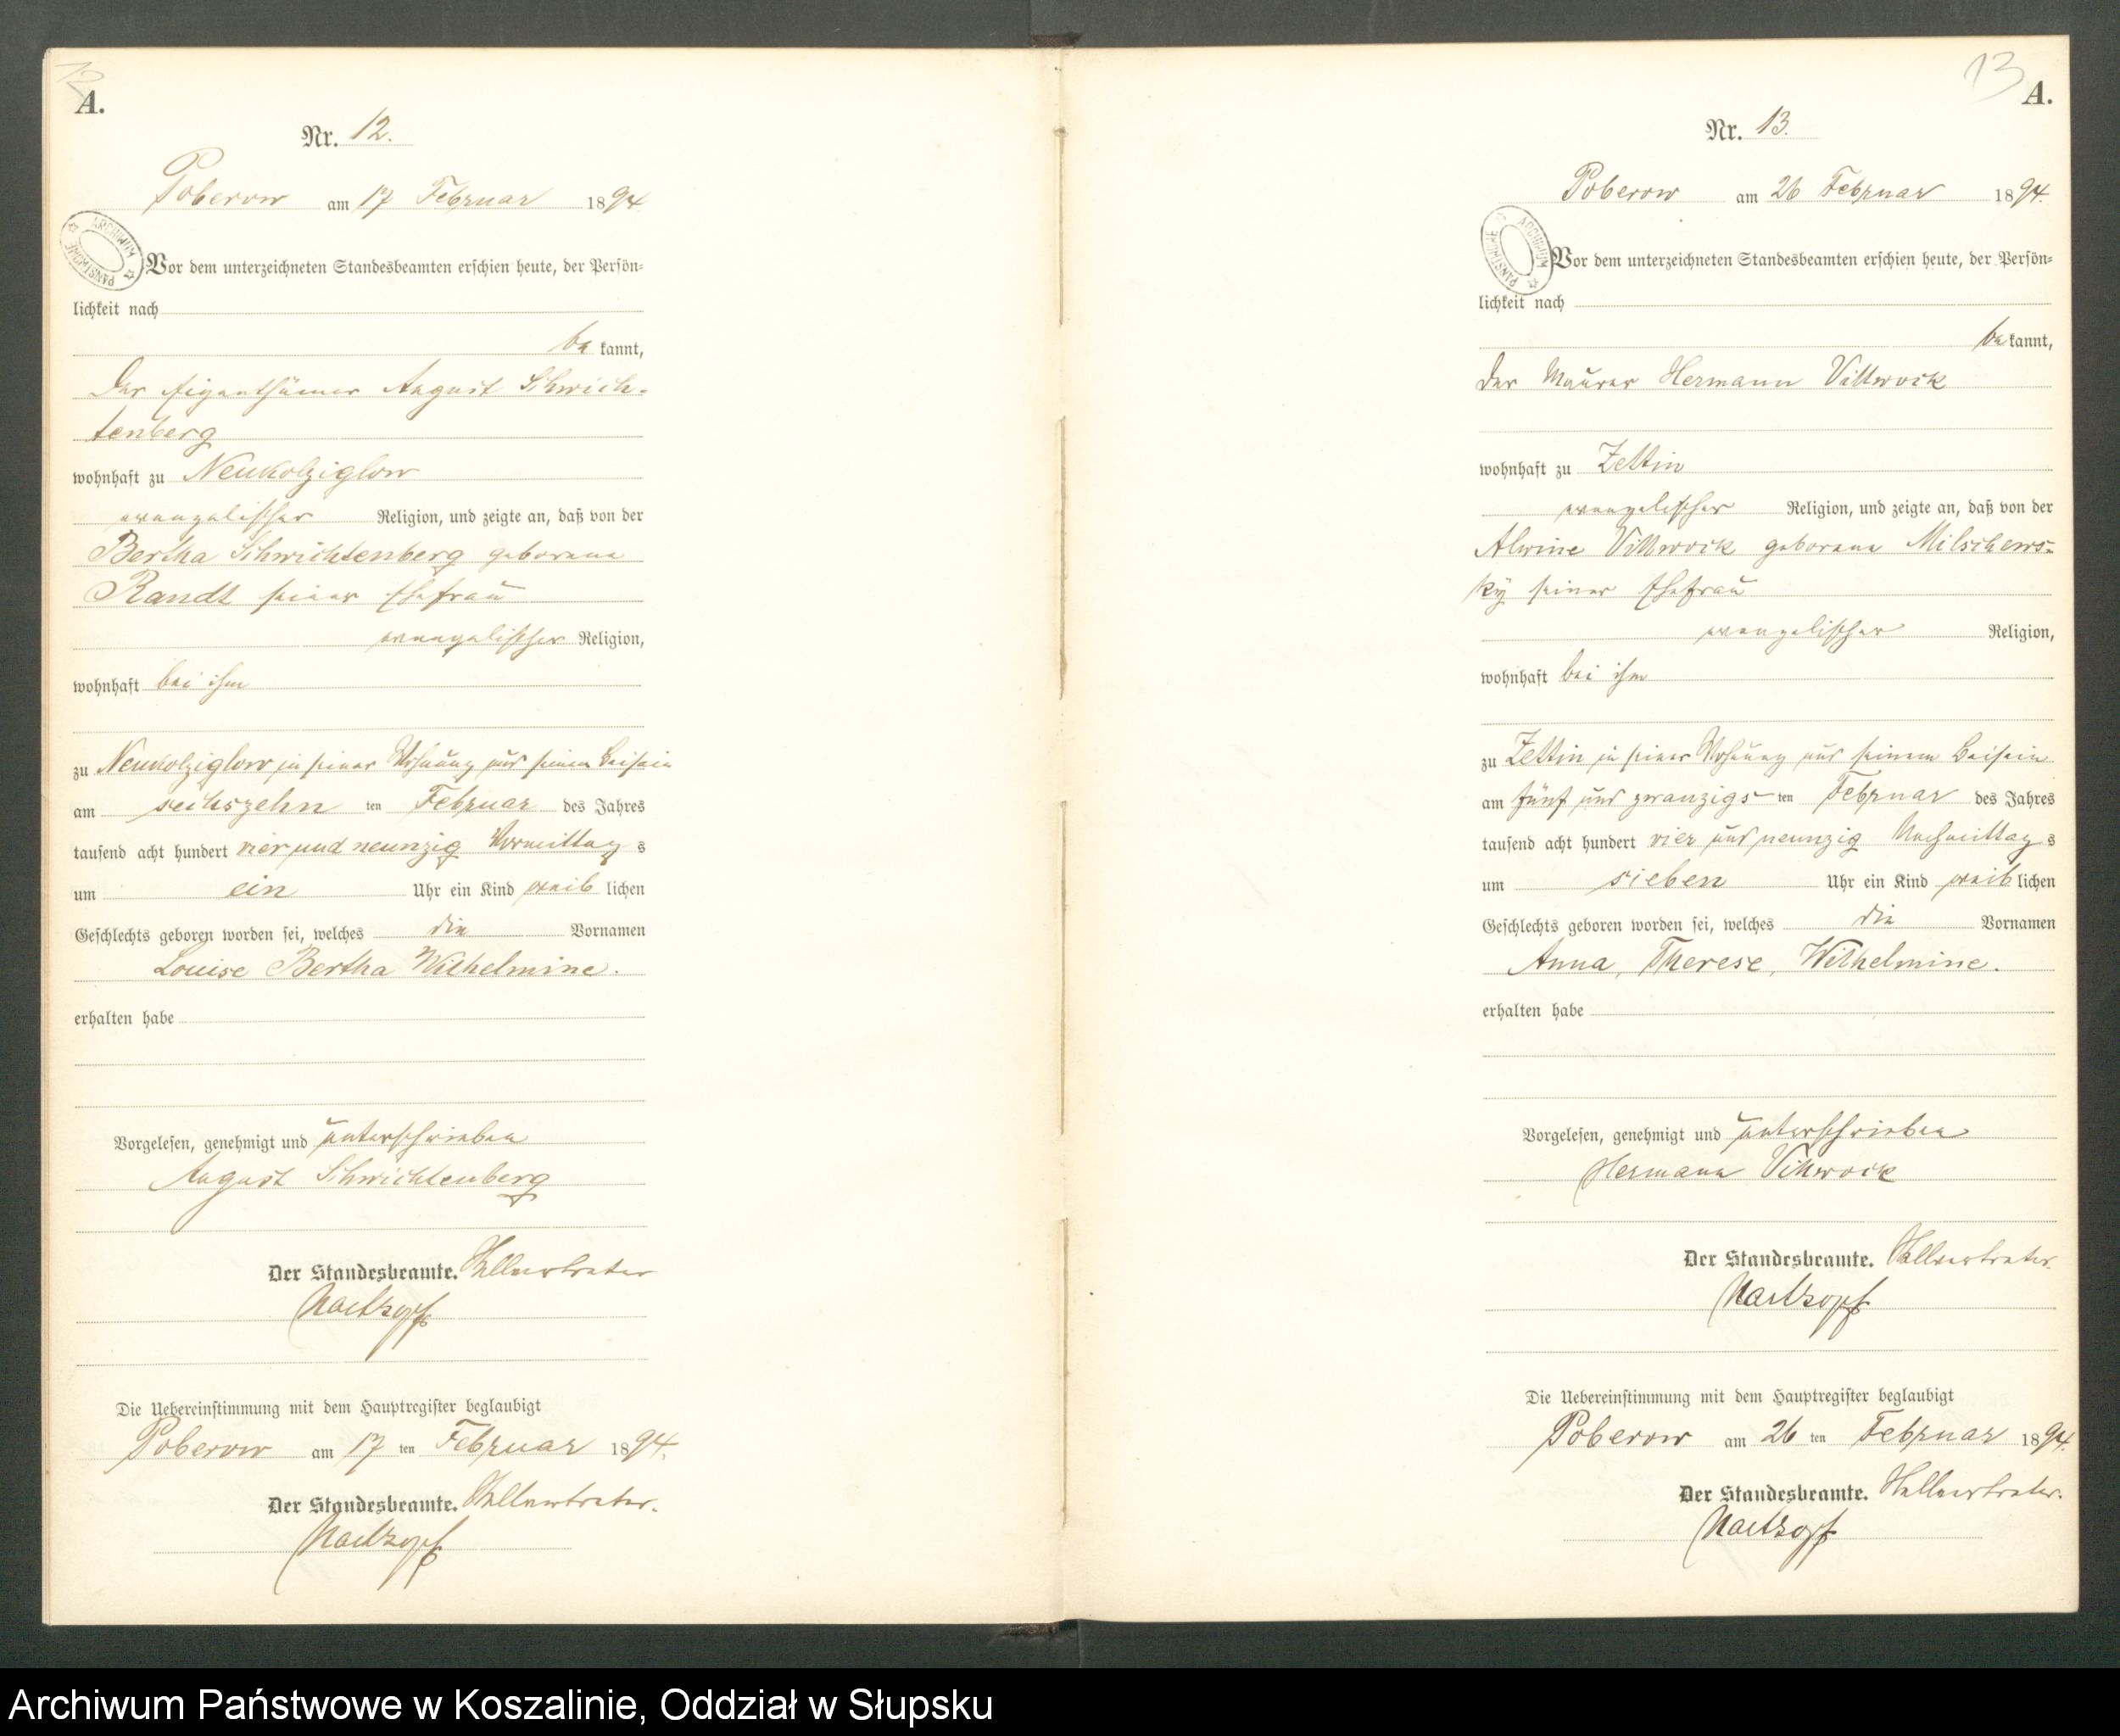 12
A.
Nr. 12.
Poberow am 17 Februar 1894.
ARCHIWUM PAŃSTWOWE
Vor dem unterzeichneten Standesbeamten erschien heute, der Persön-
lichkeit nach
be kannt,
der Eigenthümer August Schwich-
tenberg
wohnhaft zu Neukolziglow
evangelischer Religion, und zeigte an, daß von der
Bertha Schwichtenberg geborene
Randt seiner Ehefrau
evangelischer Religion,
wohnhaft bei ihm
zu Neukolziglow in seiner Wohnung und seinem Beisein
am sechszehn ten Februar des Jahres
tausend acht hundert vier und neunzig Vormittag s
um ein Uhr ein Kind weib lichen
Geschlechts geboren worden sei, welches die Vornamen
Louise Bertha Wilhelmine.
erhalten habe
Vorgelesen, genehmigt und unterschrieben
August Schwichtenberg
Der Standesbeamte. Stellvertreter
Die Uebereinstimmung mit dem Hauptregister beglaubigt
Poberow am 17 ten Februar 1894.
Der Standesbeamte. Stellvertreter.
13
A.
Nr. 13.
Poberow am 26 Februar 1894.
ARCHIWUM PAŃSTWOWE
Vor dem unterzeichneten Standesbeamten erschien heute, der Persön-
lichkeit nach
be kannt,
der Maurer Hermann Villwock
wohnhaft zu Zettin
evangelischer Religion, und zeigte an, daß von der
Alwine Villwock geborene Milschews-
ky seiner Ehefrau
evangelischer Religion,
wohnhaft bei ihm
zu Zettin in seiner Wohnung und seinem Beisein
am fünf und zwanzigs ten Februar des Jahres
tausend acht hundert vier und neunzig Nachmittag s
um sieben Uhr ein Kind weib lichen
Geschlechts geboren worden sei, welches die Vornamen
Anna, Therese, Wilhelmine.
erhalten habe
Vorgelesen, genehmigt und unterschrieben
Hermann Villwock
Der Standesbeamte. Stellvertreter.
Die Uebereinstimmung mit dem Hauptregister beglaubigt
Poberow am 26 ten Februar 1894.
Der Standesbeamte. Stellvertreter.
Archiwum Państwowe w Koszalinie, Oddział w Słupsku